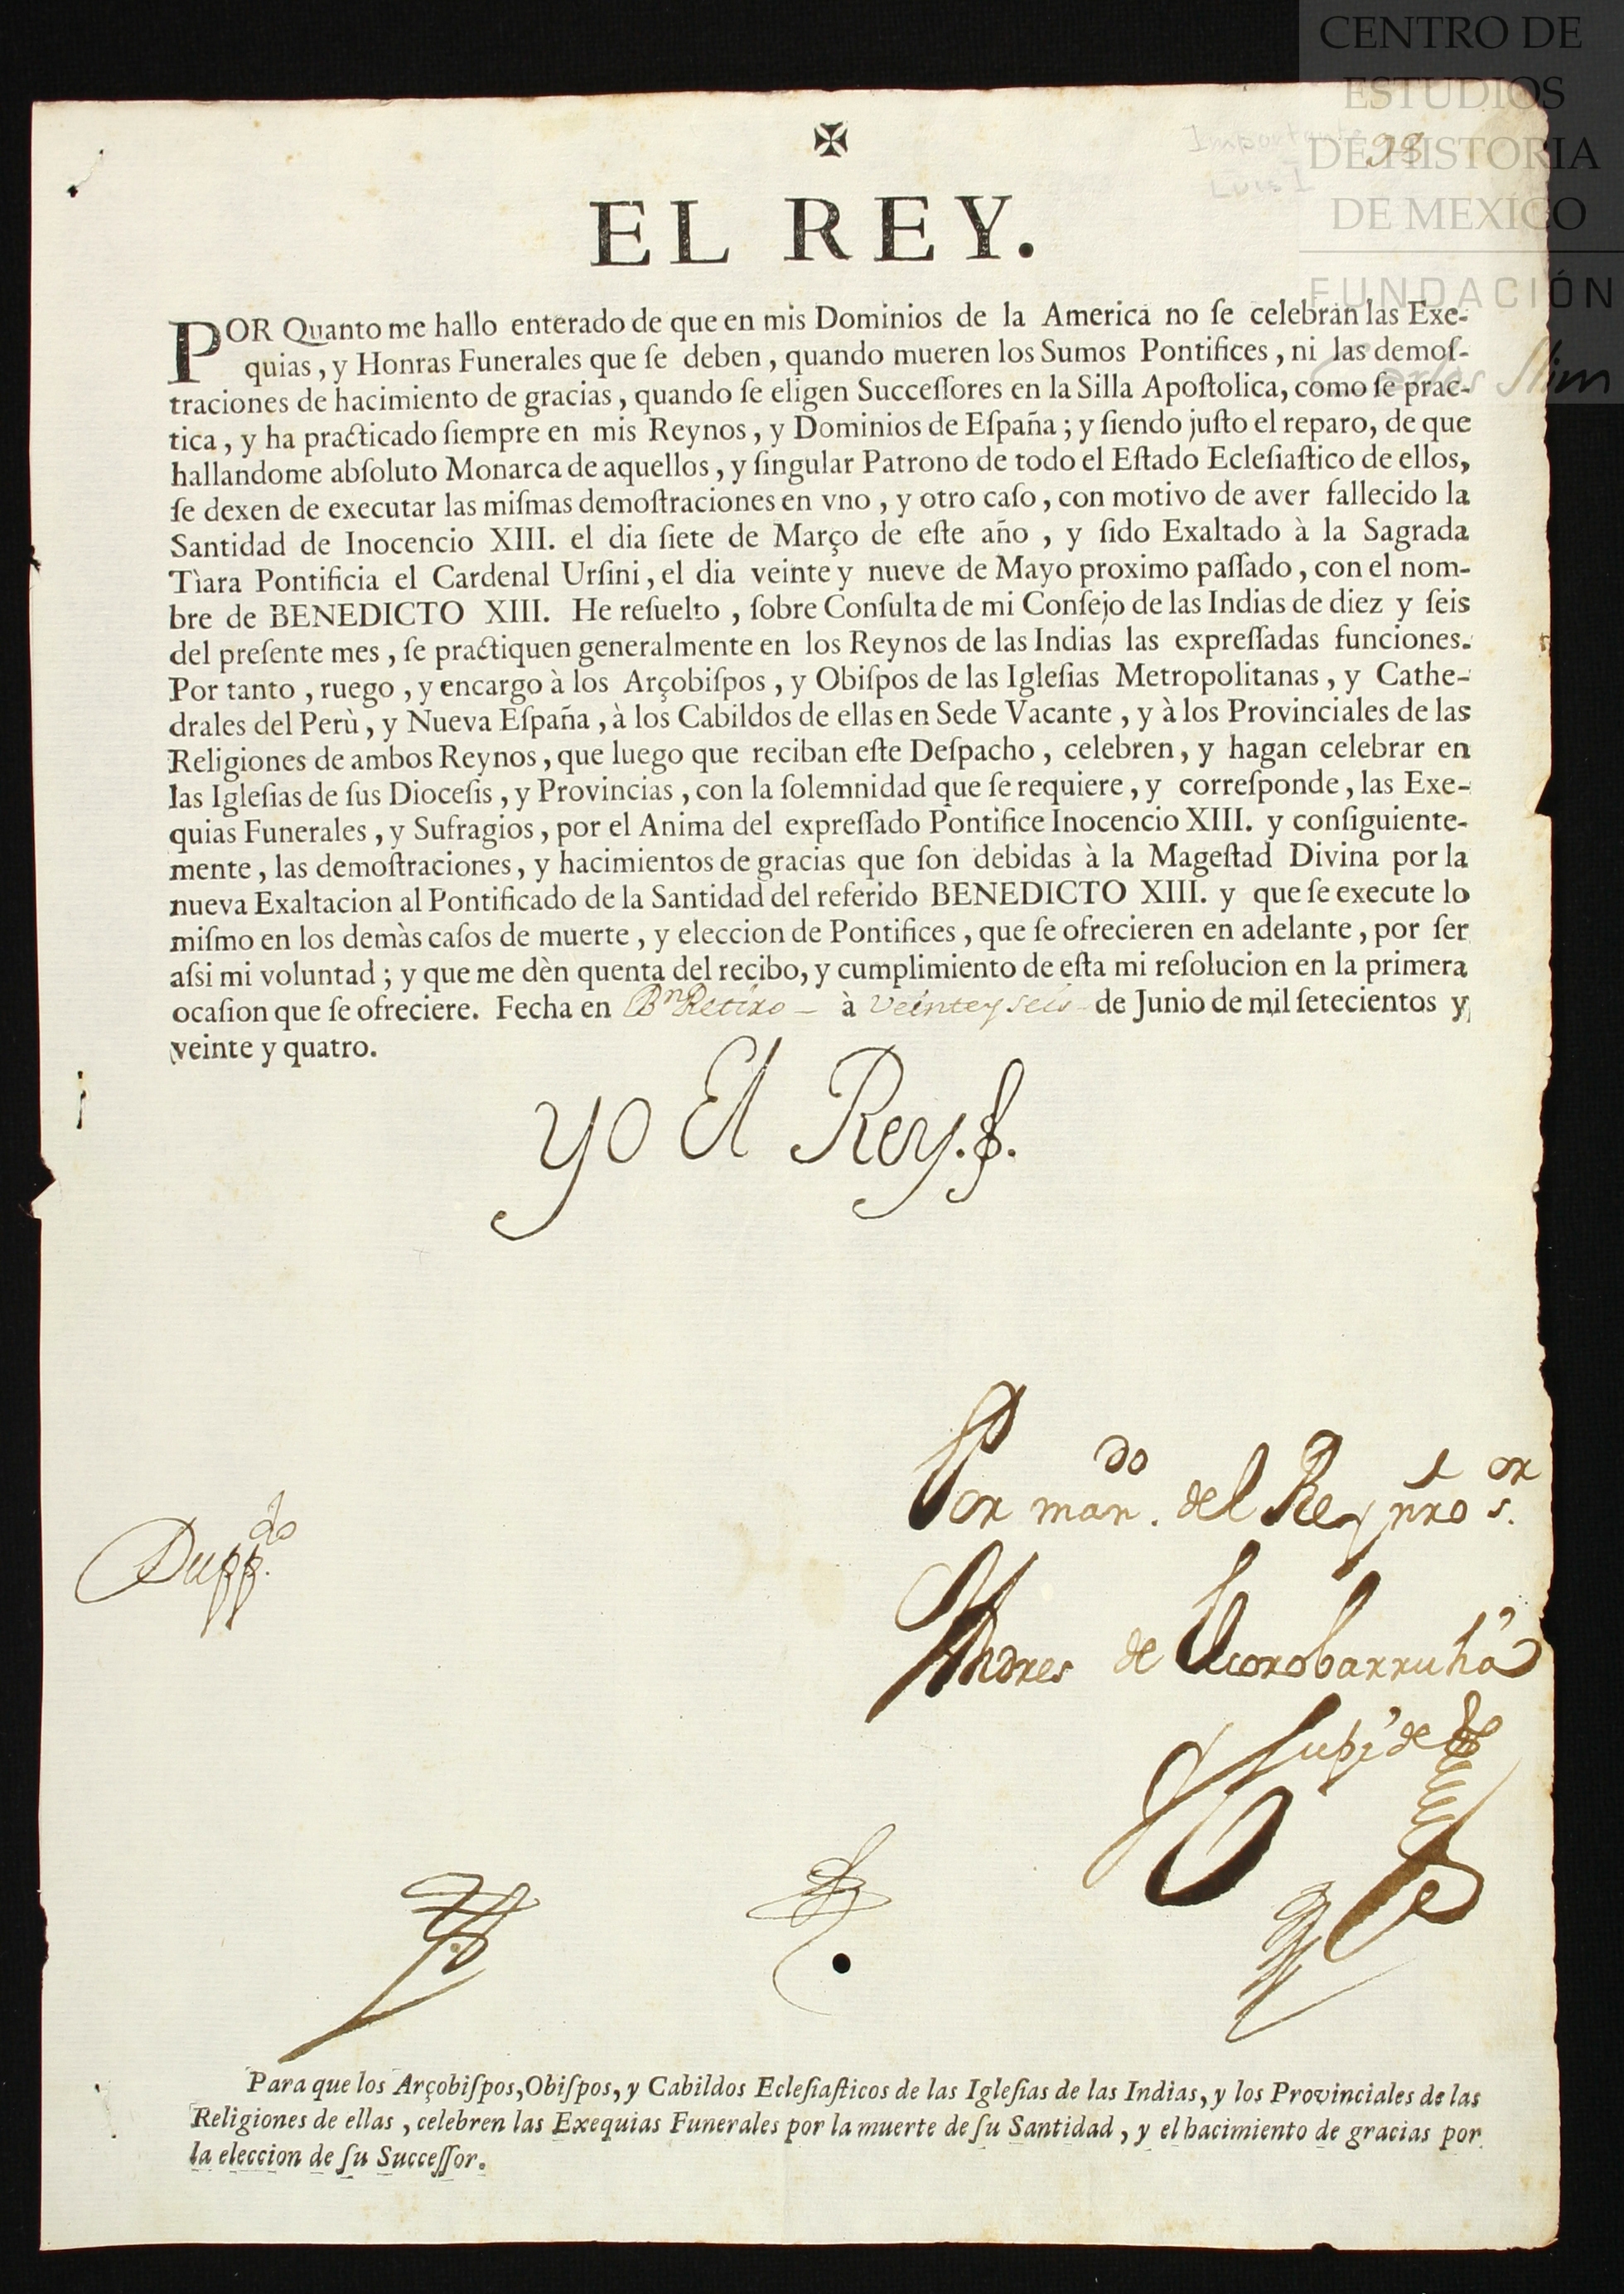 CENTRO DE
ESTUDIOS
DE HISTORIA
DE MEXICO
FUNDACIÓN
Carlos Slim
Importante
Luis I
98
✠
EL REY.
POR Quanto me hallo enterado de que en mis Dominios de la America no ſe celebran las Exe-
quias, y Honras Funerales que ſe deben, quando mueren los Sumos Pontifices, ni las demoſ-
traciones de hacimiento de gracias, quando ſe eligen Succeſſores en la Silla Apoſtolica, como ſe prac-
tica, y ha practicado ſiempre en mis Reynos, y Dominios de Eſpaña; y ſiendo juſto el reparo, de que
hallandome abſoluto Monarca de aquellos, y ſingular Patrono de todo el Eſtado Ecleſiaſtico de ellos,
ſe dexen de executar las miſmas demoſtraciones en vno, y otro caſo, con motivo de aver fallecido la
Santidad de Inocencio XIII. el dia ſiete de Março de eſte año, y ſido Exaltado à la Sagrada
Tiara Pontificia el Cardenal Urſini, el dia veinte y nueve de Mayo proximo paſſado, con el nom-
bre de BENEDICTO XIII. He reſuelto, ſobre Conſulta de mi Conſejo de las Indias de diez y ſeis
del preſente mes, ſe practiquen generalmente en los Reynos de las Indias las expreſſadas funciones.
Por tanto, ruego, y encargo à los Arçobiſpos, y Obiſpos de las Igleſias Metropolitanas, y Cathe-
drales del Perù, y Nueva Eſpaña, à los Cabildos de ellas en Sede Vacante, y à los Provinciales de las
Religiones de ambos Reynos, que luego que reciban eſte Deſpacho, celebren, y hagan celebrar en
las Igleſias de ſus Dioceſis, y Provincias, con la ſolemnidad que ſe requiere, y correſponde, las Exe-
quias Funerales, y Sufragios, por el Anima del expreſſado Pontifice Inocencio XIII. y conſiguiente-
mente, las demoſtraciones, y hacimientos de gracias que ſon debidas à la Mageſtad Divina por la
nueva Exaltacion al Pontificado de la Santidad del referido BENEDICTO XIII. y que ſe execute lo
miſmo en los demàs caſos de muerte, y eleccion de Pontifices, que ſe ofrecieren en adelante, por ſer
aſsi mi voluntad; y que me dèn quenta del recibo, y cumplimiento de eſta mi reſolucion en la primera
ocaſion que ſe ofreciere. Fecha en Bn Retiro – à Veinte y seis de Junio de mil ſetecientos y
veinte y quatro.
yo El Rey.
Por mando. del Rey nro sor.
Dupp.do
Andres de
Para que los Arçobiſpos, Obiſpos, y Cabildos Ecleſiaſticos de las Igleſias de las Indias, y los Provinciales de las
Religiones de ellas, celebren las Exequias Funerales por la muerte de ſu Santidad, y el hacimiento de gracias por
la eleccion de ſu Succeſſor.